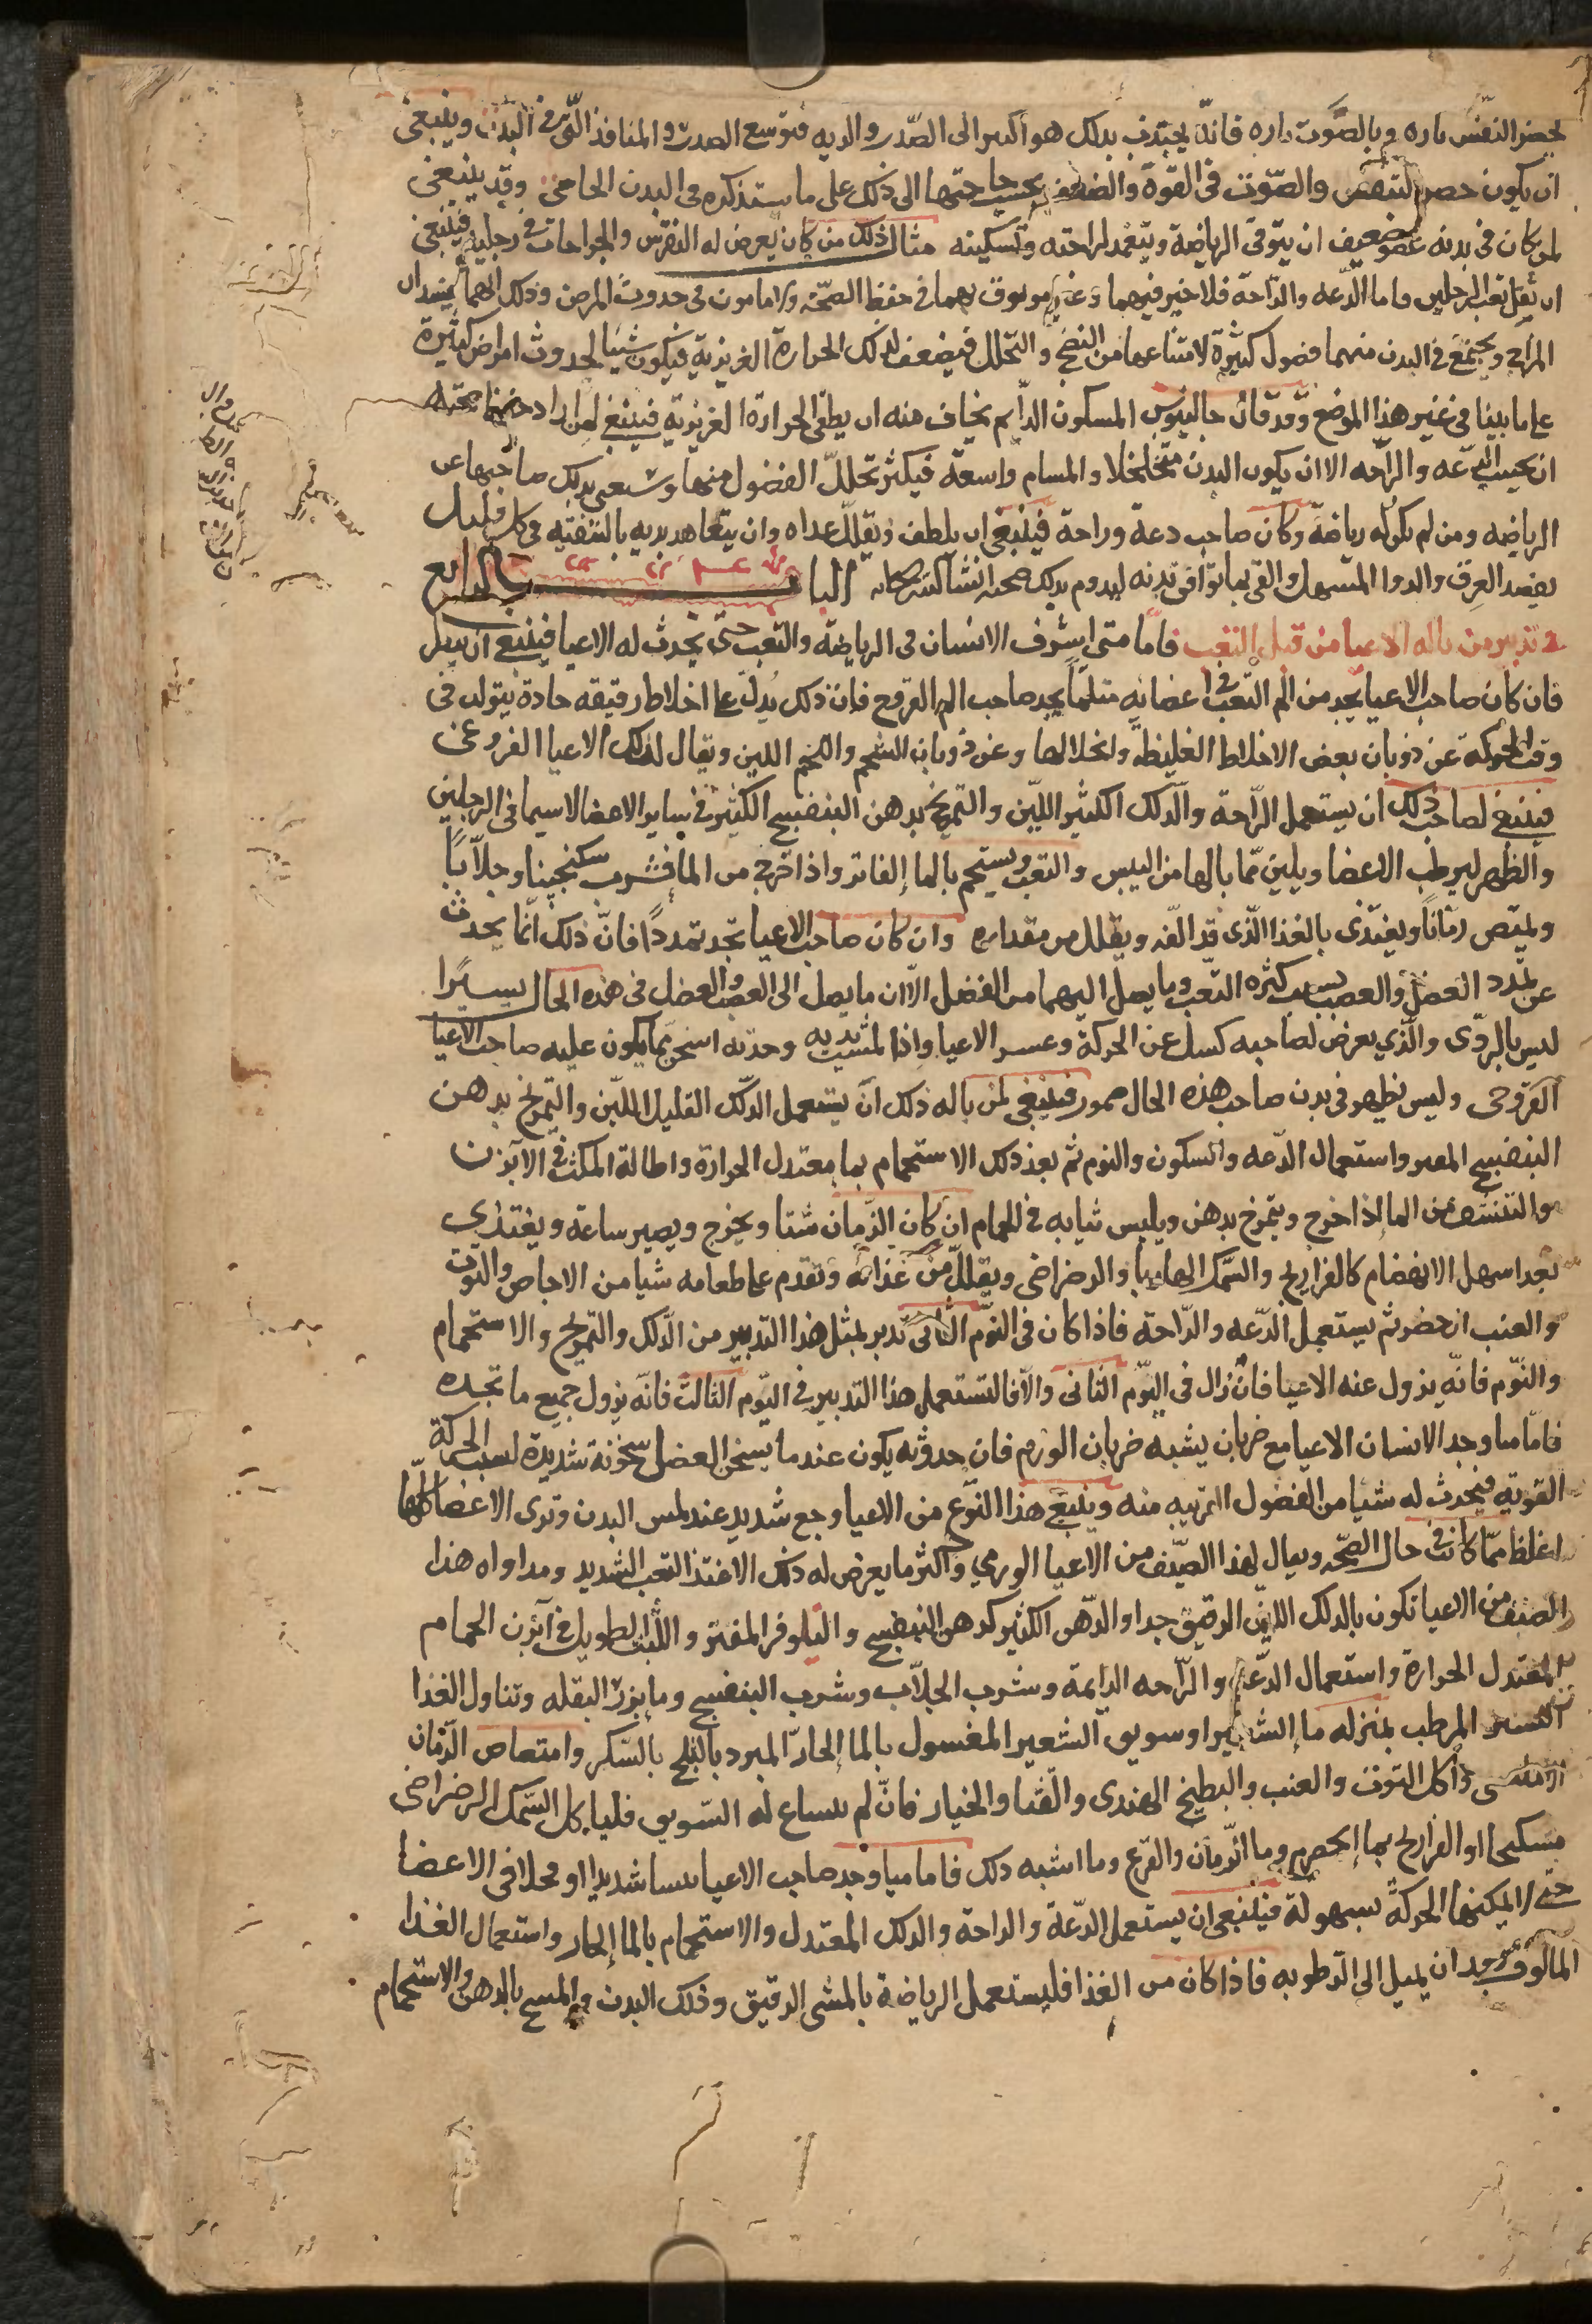 بحصر النفس تاره وبالصوت تاره فانه يجتذب بذلك هواً كثيرا الى الصدر والريه فتوسع الصدر والمنافذ التى فى البدن وينبغى
ان يكون حصر التنفس والصوت فى القوة والضعف بحسب حاجتها الى ذلك على ما سنذكره فى البدن الخاص وقد ينبغى
لمن كان فى بدنه عضو ضعيف ان يتوقى الرياضة ويتعمد لراحته وتسكينه مثال ذلك من كان يعرض له النقرس والجراحات فى رجليه فينبغى
ان يقل تعب الرجلين واما الدعه والراحة فلا خير فيهما وغير موثوق بهما فى حفظ الصحة ولا مامون فى حدوث المرض وذلك انهما يفسدان
المزاج ويجتمع فى البدن منهما فضول كثيرة لامتناعها من النضج والتحلل فيضعف لذلك الحرارة الغريزية فيكون سببا لحدوث امراض كثيرة
على ما بينا فى غير هذا الموضع وقد قال جالينوس السكون الدايم يخاف منه ان يطفى الحرارة الغريزية فينبغى لمن اراد حفظ صحته
ان يجتنب الدعه والراحه الا ان يكون البدن متخلخلا والمسام واسعة فيكثر تحلل الفضول منها ويستغنى بذلك صاحبها عن
الرياضه ومن لم يكن له رياضة وكان صاحب دعة وراحة فينبغى ان يلطف ويقلل غداه وان يتعاهد بدنه بالتنقيه فى كل قليل
بفصد العرق والدوا المسهل والقى بما يوافق بدنه ليدوم بذلك صحته ان شا الله تعالى الباب الرابع
فى تدبير من ناله الاعيا من قبل التعب فاما متى اسرف الانسان فى الرياضة والتعب حتى يحدث له الاعيا فينبغى ان ينظر
فان كان صاحب الاعيا يجد من الم التعب فى اعضايه مثل ما يجد صاحب الم القروح فان ذلك يدل على اخلاط رقيقه حادة يتولد فى
وقت الحركة عن ذوبان بعض الاخلاط الغليظة وانحلالها وعن ذوبان الشحم واللحم اللين ويقال لذلك الاعيا القروحى
فينبغى لصاحب ذلك ان يستعمل الراحة والدلك الكثير اللين والتمريخ بدهن البنفسج الكثير فى ساير الاعضا لا سيما فى الرجلين
والظهر ليرطب الاعضا ويلين مما نالها من اليبس والتعب ويستحم بالما الفاتر واذا خرج من الما فيشرب سكنجبينا وجلابا
وليمتص رمانا ويغتذى بالغذا الذى قد الفه ويقلل من مقداره وان كان صاحب الاعيا يجد تمددا فان ذلك انما يحدث
عن تمدد العضل والعصب بسبب كثره التعب وما يصل اليهما من الفضل الا ان ما يصل الى العصب والعضل فى هذه الحال يسيرا
ليس بالردى والذى يعرض لصاحبه كسل عن الحركة وعسر الاعيا واذا لمست بدنه وجدته اسخن مما يكون عليه صاحب الاعيا
القروحى وليس يظهر فى بدن صاحب هذه الحال ضمور فينبغى لمن ناله ذلك ان يستعمل الدلك القليل اللين والتمريخ بدهن
البنفسج المفتر واستعمال الدعه والسكون والنوم ثم بعد ذلك الاستحمام بما معتدل الحرارة واطالة المكث فى الابزن
والتنشف من الما اذا خرج ويتمرخ بدهن ويلبس ثيابه فى الحمام ان كان الزمان شتا ويخرج ويصير ساعة ويغتذى
بغدا سهل الانهضام كالفراريج والسمك الهازبا والرضراضى ويقلل من غذائه وتقدم على طعامه شيا من الاجاص والتوت
والعنب ان حضر ثم يستعمل الدعه والراحة فاذا كان فى اليوم الثانى تدبر بمثل هذا التدبير من الدلك والتمريخ والاستحمام
والنوم فانه يزول عنه الاعيا فان زال فى اليوم الثانى والا فالتستعمل هذا التدبير فى اليوم الثالث فانه يزول جميع ما تجده
فاما متى وجد الانسان الاعيا مع ضربان يشبه ضربان الورم فان حدوثه يكون عندما يسخن العضل سخونة شديدة لسبب الحركة
القوية فيحدث له شيا من الفضول القريبه منه ويتبع هذا النوع من الاعيا وجع شديد عند لمس البدن وترى الاعضا كلها
اغلظ مما كانت فى حال الصحه ويقال لهذا الصنف من الاعيا الورمي واكثر ما يعرض له ذلك الاعند التعب الشديد ومداواه هذا
الصنف من الاعيا تكون بالدلك اللين الرقيق جدا والدهن الكثير كدهن البنفسج والنيلوفر المفتر واللبث الطويل فى آبزن الحمام
المعتدل الحرارة واستعمال الدعه والراحه الدايمة وشرب الجلاب وشرب البنفسج وما بزر البقله وتناول الغذا
اليسير المرطب بمنزله ما الشعير او سويق الشعير المغسول بالما الحار المبرد بالثلج بالسكر وامتصاص الرمان
الامليسى واكل التوت والعنب والبطيخ الهندى والقثا والخيار فان لم ينساغ له السويق فلياكل السمك الرضراضى
مسكبجا او الفراريج بما الحصرم وما الرمان والقرع وما اشبه ذلك فاما متى وجد صاحب الاعيا يبسا شديدا او قحلا فى الاعضا
حتى لا يمكنها الحركة بسهولة فينبغى ان يستعمل الدعة والراحة والدلك المعتدل والاستحمام بالما الحار واستعمال الغذا
المالوف بعد ان يميل الى الرطوبه فاذا كان من الغذا فليستعمل الرياضة بالمشى الرقيق ودلك البدن والمسح بالدهن والاستحمام